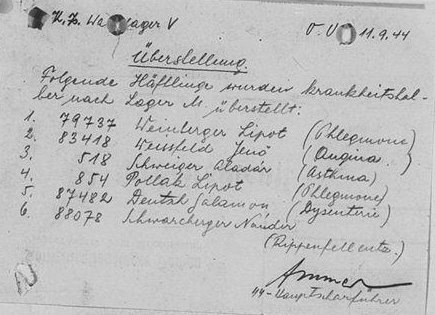 K.Z. Waldlager V
O.U. 11.9.44
Überstellung
Folgende Häftlinge wurden krankheitshal-
ber nach Lager M. überstellt:
1. 79737 Weinberger Lipot (Phlegmone)
2. 83418 Weissfeld Jenö (Angina)
3. 518 Schweiger Aladár (Asthma)
4. 854 Pollak Lipot (Phlegmone)
5. 87482 Deutsch Salamon (Dysenterie)
6. 88078 Schwarcberger Nándor
(Rippenfellentz.)
SS-Hauptscharführer